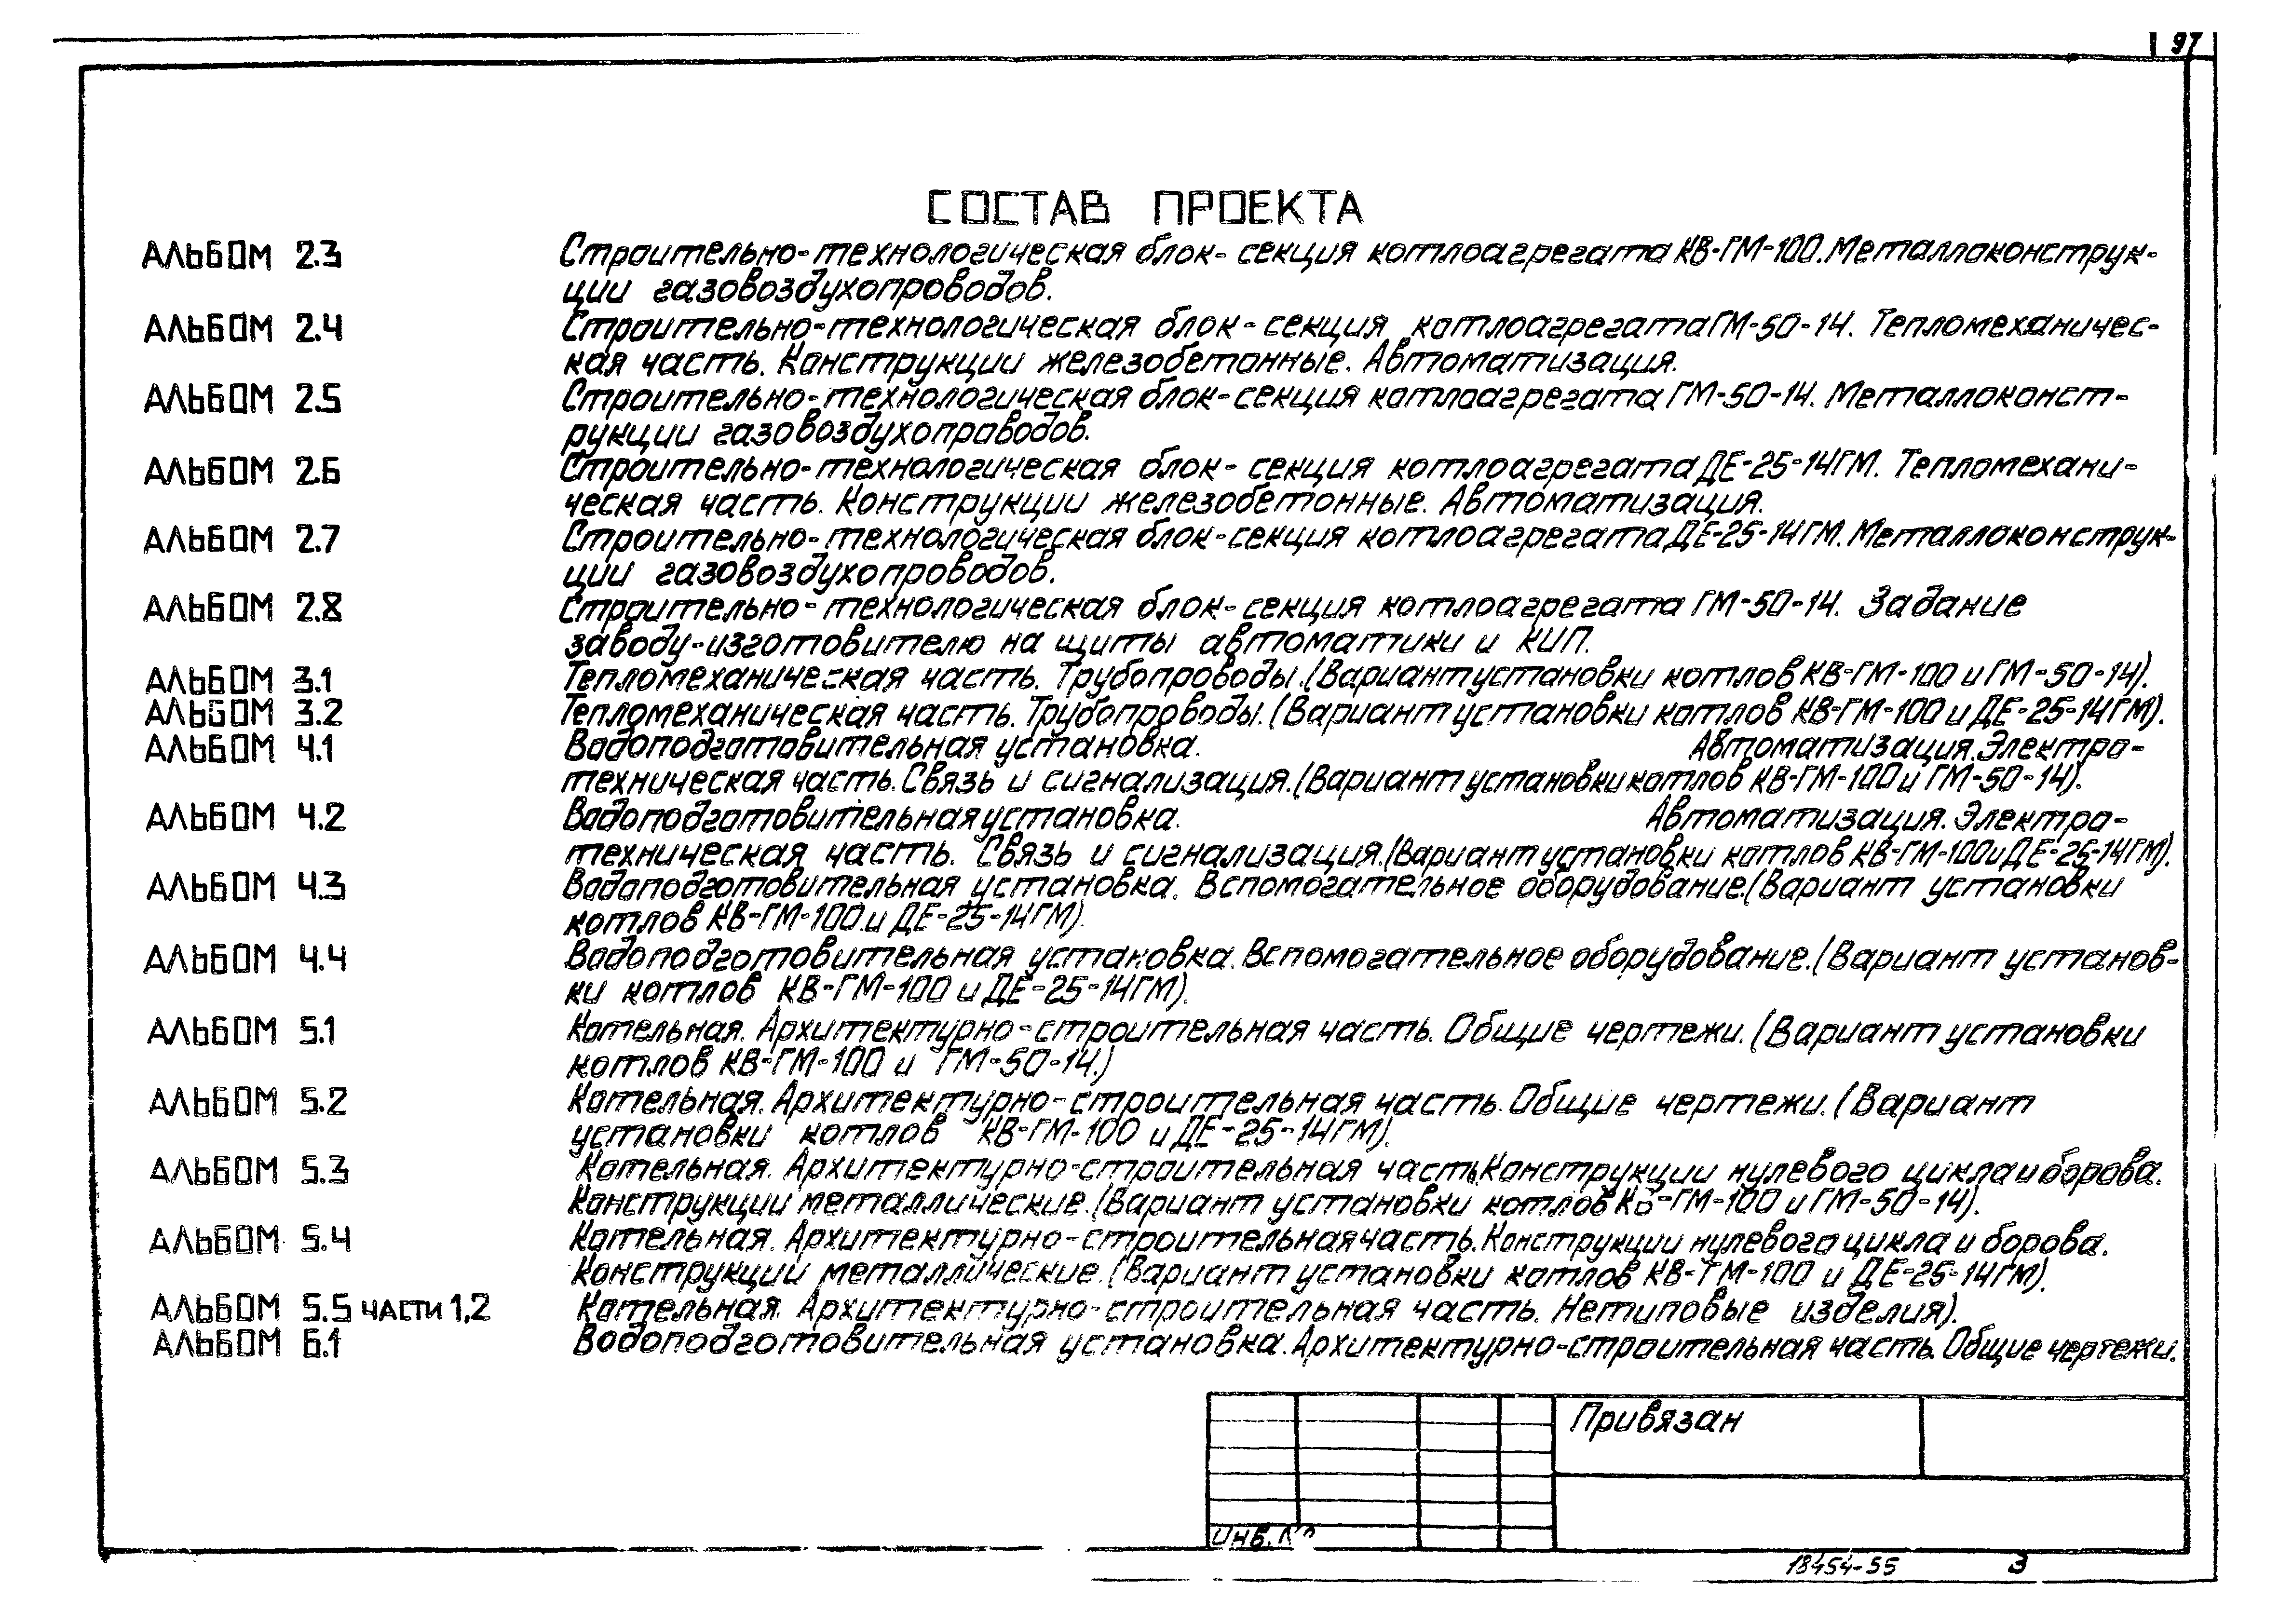 97
СОСТАВ ПРОЕКТА
АЛЬБОМ 2.3 Строительно-технологическая блок-секция котлоагрегата КВ-ГМ-100. Металлоконструк-
ции газовоздухопроводов.
АЛЬБОМ 2.4 Строительно-технологическая блок-секция котлоагрегата ГМ-50-14. Тепломеханичес-
кая часть. Конструкции железобетонные. Автоматизация.
АЛЬБОМ 2.5 Строительно-технологическая блок-секция котлоагрегата ГМ-50-14. Металлоконст-
рукции газовоздухопроводов.
АЛЬБОМ 2.6 Строительно-технологическая блок-секция котлоагрегата ДЕ-25-14ГМ. Тепломехани-
ческая часть. Конструкции железобетонные. Автоматизация.
АЛЬБОМ 2.7 Строительно-технологическая блок-секция котлоагрегата ДЕ-25-14ГМ. Металлоконструк-
ции газовоздухопроводов.
АЛЬБОМ 2.8 Строительно-технологическая блок-секция котлоагрегата ГМ-50-14. Задание
заводу-изготовителю на щиты автоматики и КИП.
АЛЬБОМ 3.1 Тепломеханическая часть. Трубопроводы. (Вариант установки котлов КВ-ГМ-100 и ГМ-50-14).
АЛЬБОМ 3.2 Тепломеханическая часть. Трубопроводы. (Вариант установки котлов КВ-ГМ-100 и ДЕ-25-14ГМ).
АЛЬБОМ 4.1 Водоподготовительная установка. Автоматизация. Электро-
техническая часть. Связь и сигнализация. (Вариант установки котлов КВ-ГМ-100 и ГМ-50-14).
АЛЬБОМ 4.2 Водоподготовительная установка. Автоматизация. Электро-
техническая часть. Связь и сигнализация. (Вариант установки котлов КВ-ГМ-100 и ДЕ-25-14ГМ).
АЛЬБОМ 4.3 Водоподготовительная установка. Вспомогательное оборудование. (Вариант установки
котлов КВ-ГМ-100 и ДЕ-25-14ГМ).
АЛЬБОМ 4.4 Водоподготовительная установка. Вспомогательное оборудование. (Вариант установ-
ки котлов КВ-ГМ-100 и ДЕ-25-14ГМ).
АЛЬБОМ 5.1 Котельная. Архитектурно-строительная часть. Общие чертежи. (Вариант установки
котлов КВ-ГМ-100 и ГМ-50-14.)
АЛЬБОМ 5.2 Котельная. Архитектурно-строительная часть. Общие чертежи. (Вариант
установки котлов КВ-ГМ-100 и ДЕ-25-14ГМ).
АЛЬБОМ 5.3 Котельная. Архитектурно-строительная часть. Конструкции нулевого цикла и борова.
Конструкции металлические. (Вариант установки котлов КВ-ГМ-100 и ГМ-50-14).
АЛЬБОМ 5.4 Котельная. Архитектурно-строительная часть. Конструкции нулевого цикла и борова.
Конструкции металлические. (Вариант установки котлов КВ-ГМ-100 и ДЕ-25-14ГМ).
АЛЬБОМ 5.5 ЧАСТИ 1,2 Котельная. Архитектурно-строительная часть. Нетиповые изделия).
АЛЬБОМ 6.1 Водоподготовительная установка. Архитектурно-строительная часть. Общие чертежи.
Привязан
ИНВ. №
18454-55 3